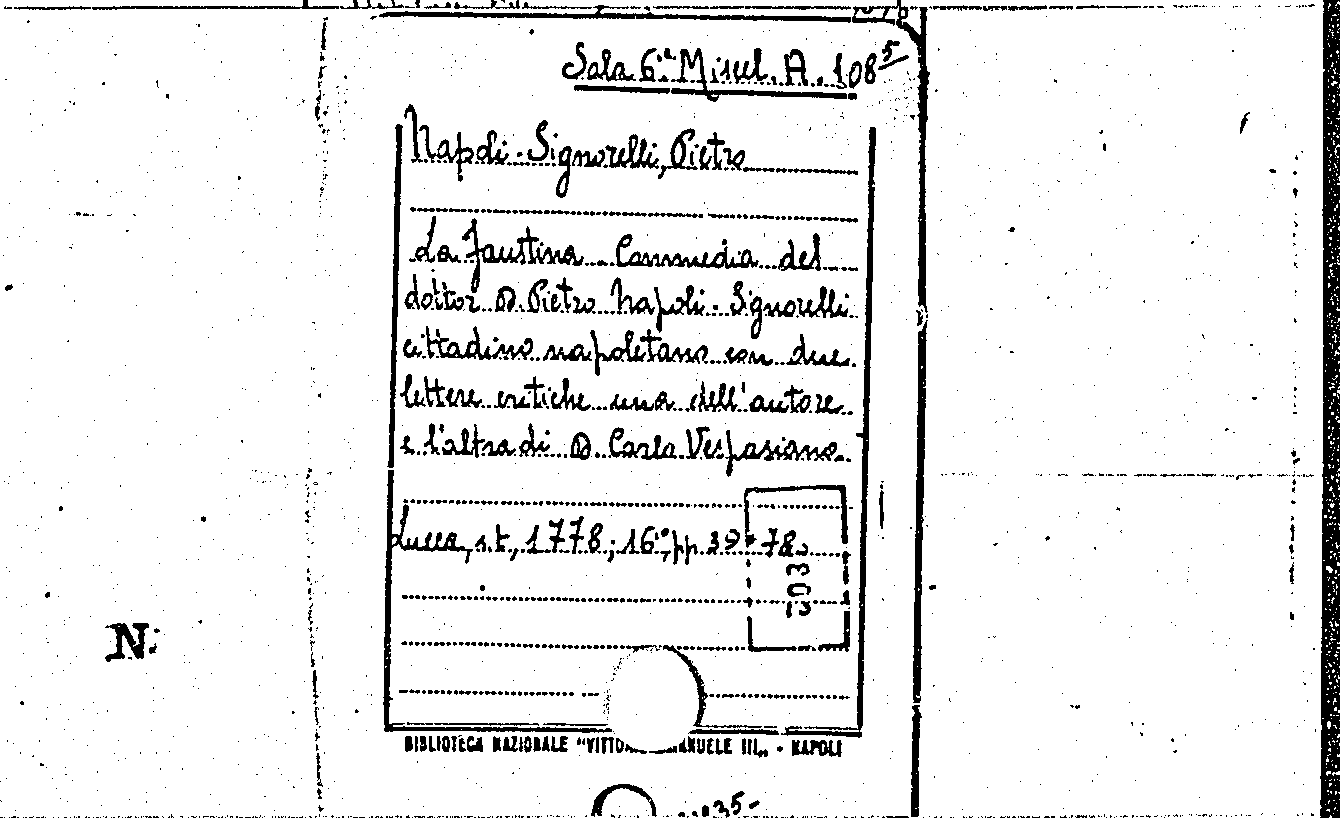 Sala 6.ª Miscel. A. 108⁵
Napoli-Signorelli, Pietro
La Faustina. Commedia del
dottor D. Pietro Napoli-Signorelli
cittadino napoletano con due
lettere critiche una dell'autore
e l'altra di D. Carlo Vespasiano.
Lucca, s.t., 1778; 16°, pp 39-78.
203
N.
BIBLIOTECA NAZIONALE "VITTORIO EMANUELE III„ - NAPOLI